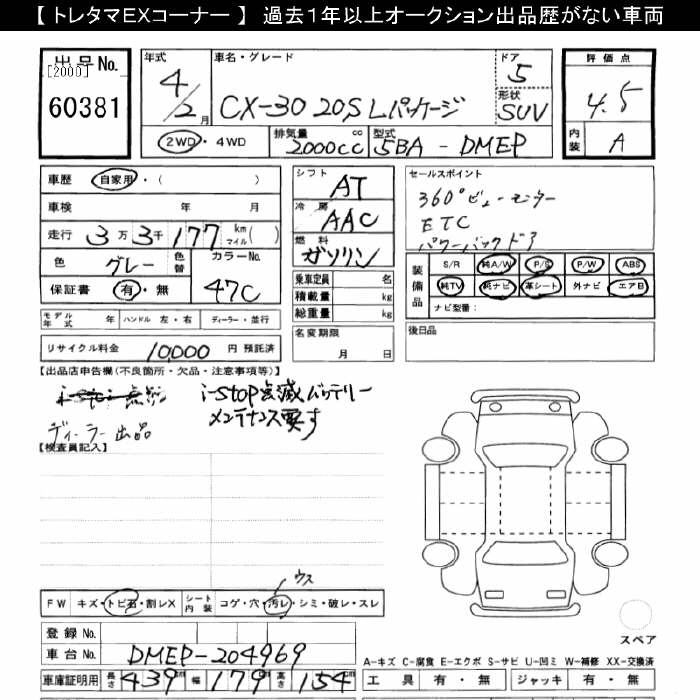 【 トレタマEXコーナー 】 過去1年以上オークション出品歴がない車両
出品No.
[2000]
60381
年式
4/2月
車名・グレード
CX-30 20S Lパッケージ
ドア
5
形状
SUV
評価点
4.5
内装
A
2WD・4WD
排気量
2000cc
cc
型式
5BA - DMEP
車歴 自家用・( )
車検 年 月
走行 3万3千177 km マイル( )
色 グレー 色替 カラーNo.
保証書 有・無 47C
シフト
AT
冷房
AAC
燃料
ガソリン
乗車定員 名
積載量 kg
総重量 kg
名変期限
月 日
セールスポイント
360°ビューモニター
ETC
パワーバックドア
装備品
S/R 純A/W P/S P/W ABS
純TV 純ナビ 革シート 外ナビ エアB
ナビ型番：
後日品
モデル年式 年 ハンドル 左・右 ディーラー・並行
リサイクル料金 10,000 円 預託済
【出品店申告欄(不良箇所・欠品・注意事項等)】
i-stop点滅バッテリー
メンテナンス要す
ディーラー出品
【検査員記入】
ウス
FW キズ・トビ石・割レX シート内装 コゲ・穴・汚レ・シミ・破レ・スレ
登録 No.
車台 No. DMEP-204969
車庫証明用 長さ 439cm 幅 179cm 高さ 154cm
スペア
A-キズ C-腐食 E-エクボ S-サビ U-凹ミ W-補修 XX-交換済
工具 有・無 ジャッキ 有・無